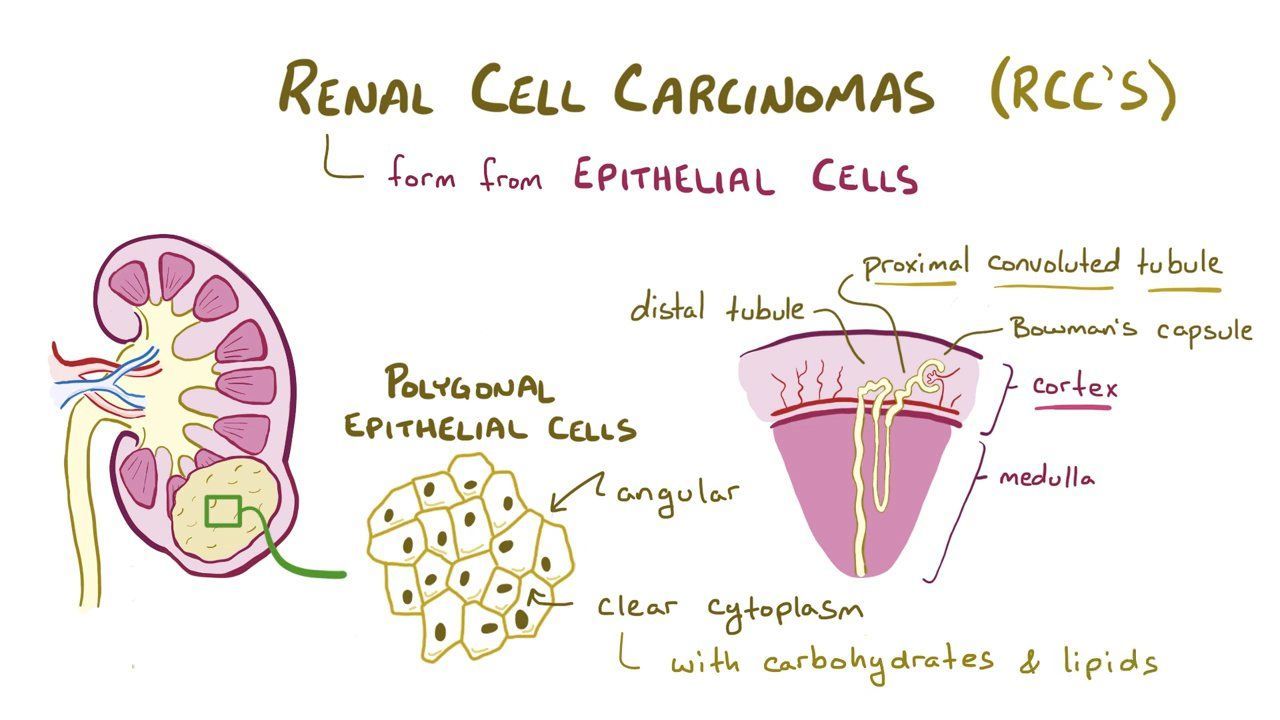 RENAL CELL CARCINOMAS (RCC'S)
form from EPITHELIAL CELLS
proximal convoluted tubule
distal tubule
Bowman's capsule
cortex
medulla
POLYGONAL
EPITHELIAL CELLS
angular
clear cytoplasm
with carbohydrates & lipids